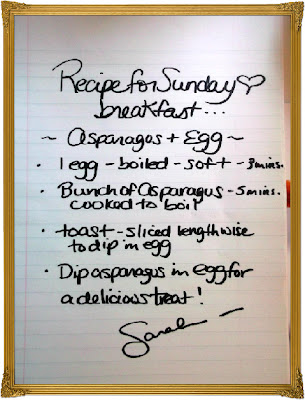 Recipe for Sunday♡
breakfast...
~ Asparagus + Egg ~
· 1 egg - boiled - soft - 3mins.
· Bunch of Asparagus - 5 mins.
cooked to boil
· toast - sliced lengthwise
to dip in egg
· Dip asparagus in egg for
a delicious treat!
Sarah —